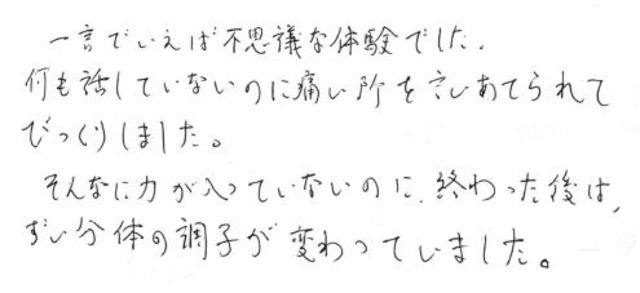 一言でいえば不思議な体験でした.
何も話していないのに痛い所を言いあてられて
びっくりしました。
そんなに力が入っていないのに、終わった後は、
ずい分体の調子が変わっていました。